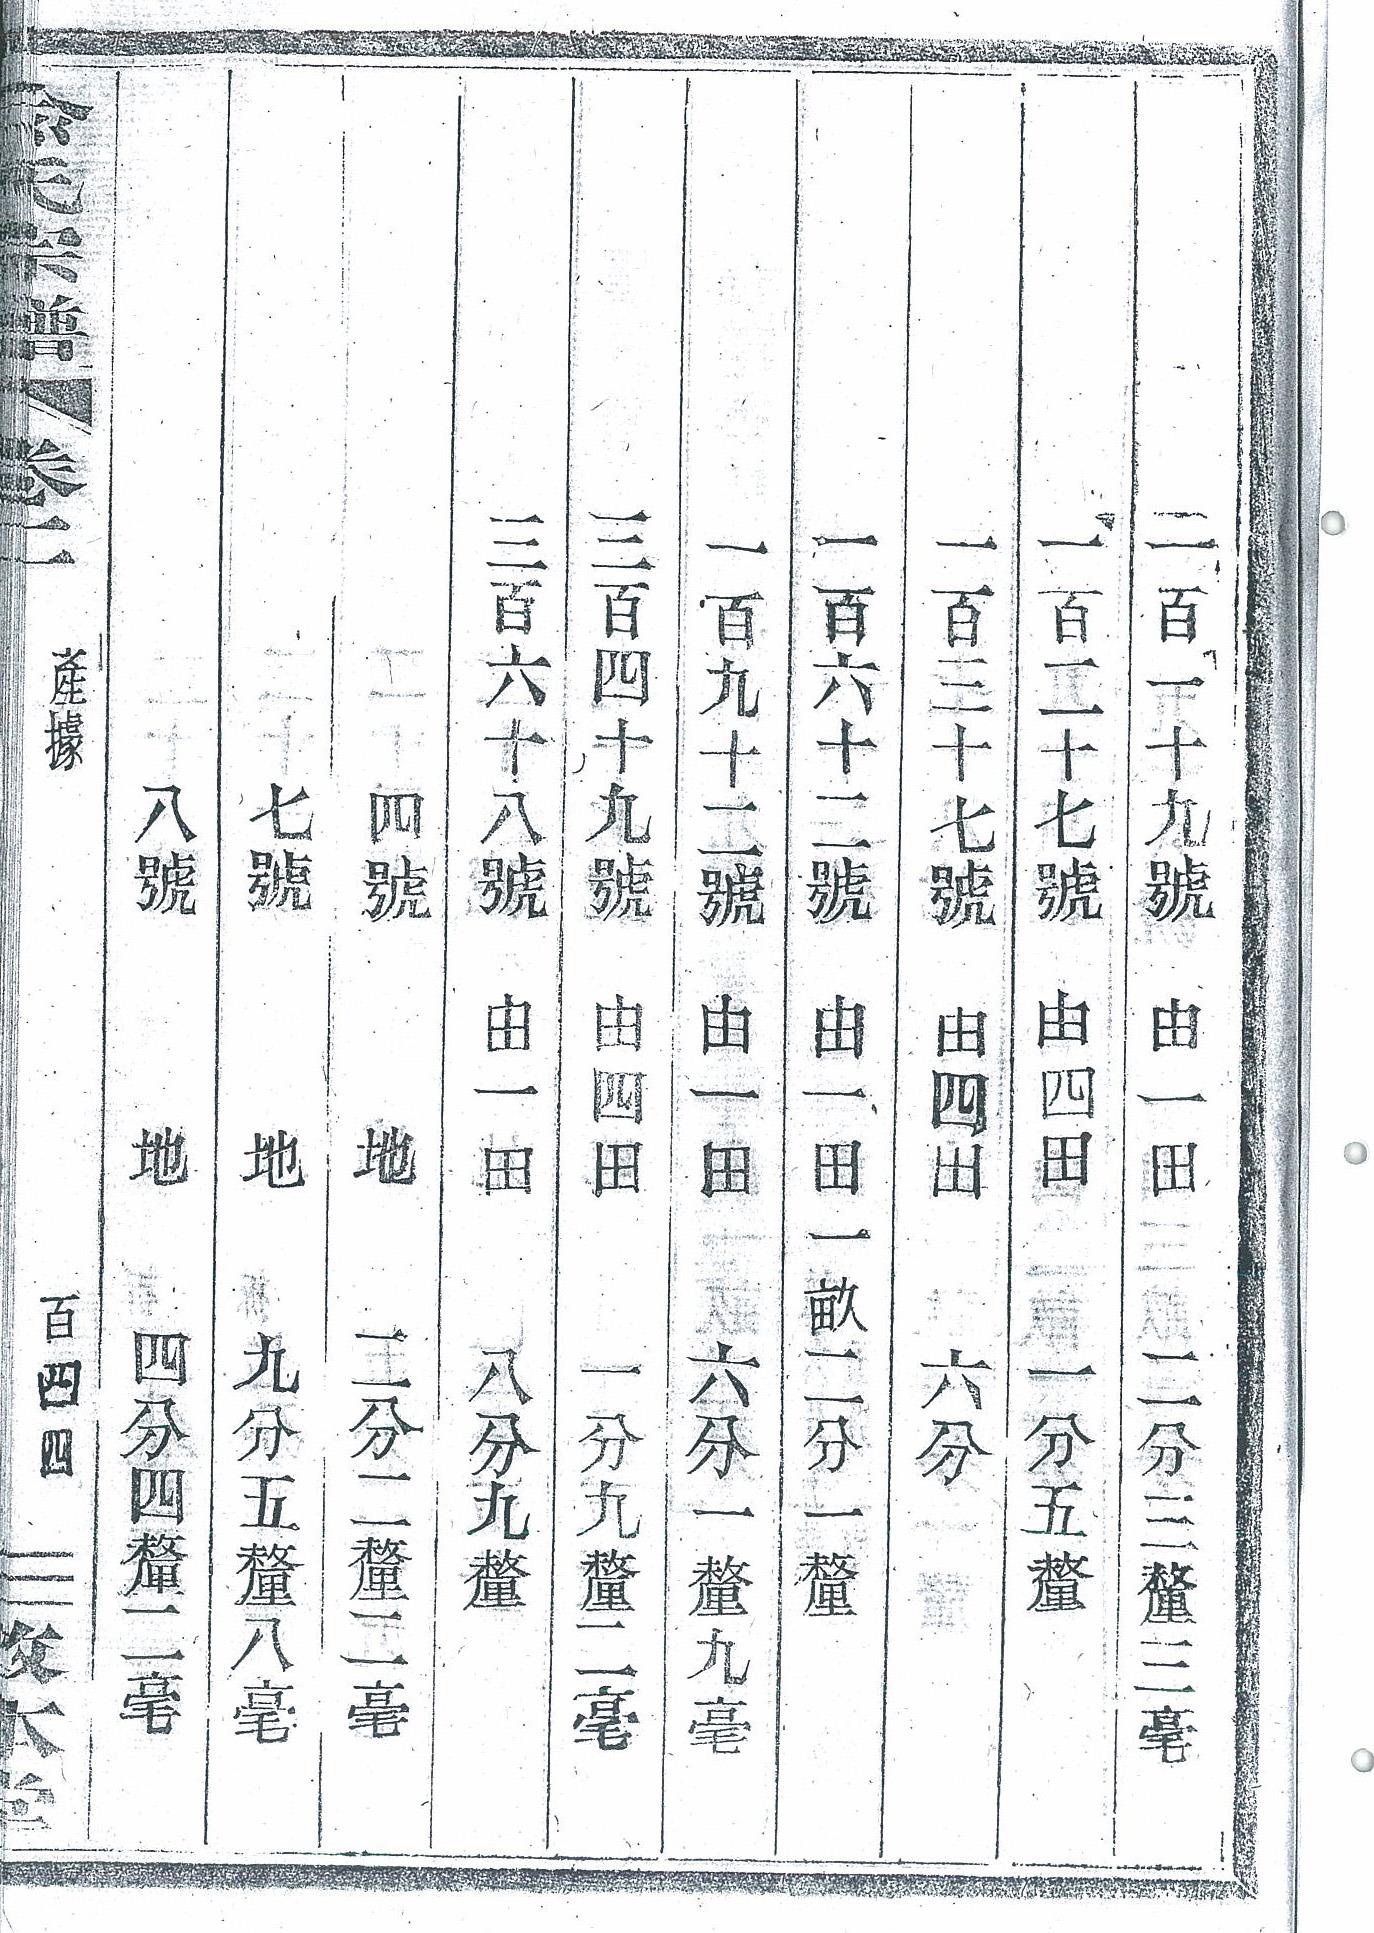 二百一十九號　由一田　二分三釐三毫
一百二十七號　由四田　一分五釐
一百三十七號　由四田　六分
一百六十三號　由一田一畝二分一釐
一百九十二號　由一田　六分一釐九毫
三百四十九號　由四田　一分九釐二毫
三百六十八號　由一田　八分九釐
四號　地　三分二釐三毫
七號　地　九分五釐八毫
八號　地　四分四釐二毫
氏宗譜　卷二　產據　百四四　本堂